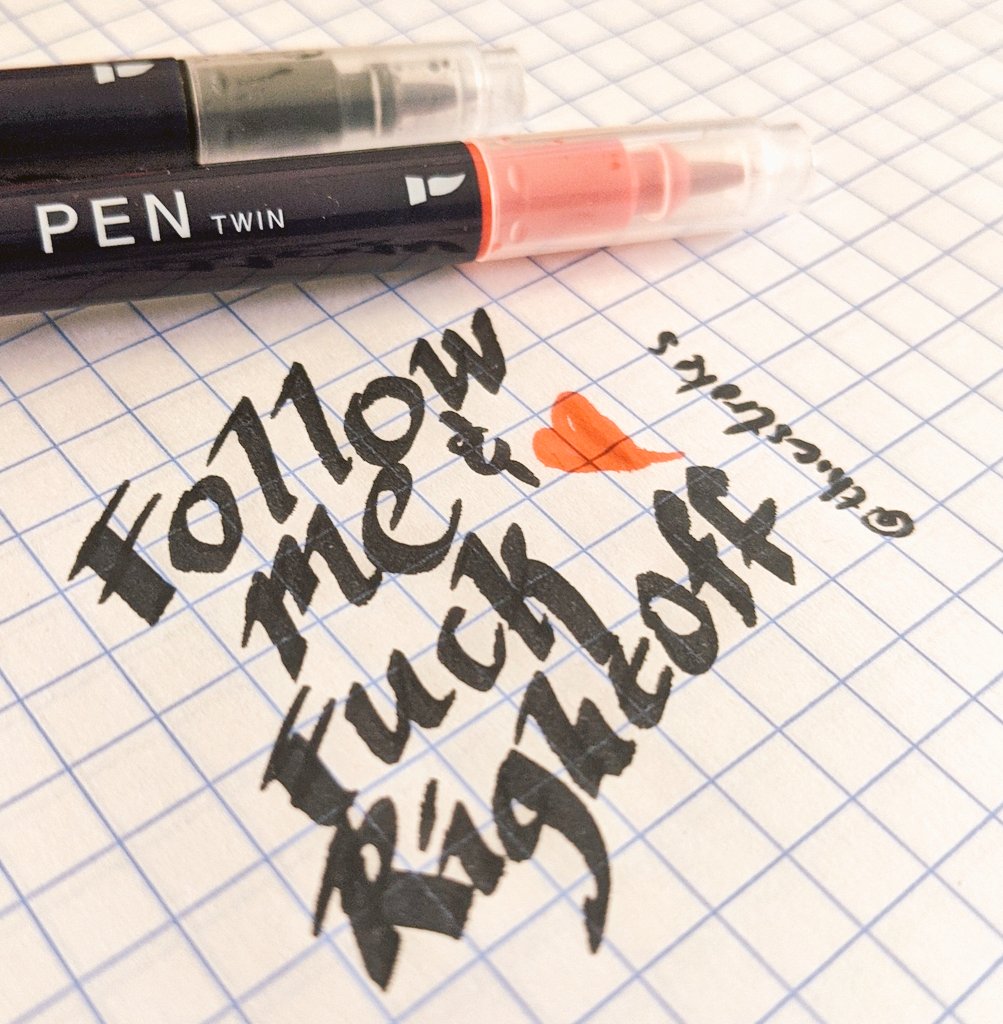 PEN TWIN
Follow
me &
Fuck
Right off
@thiestrokes